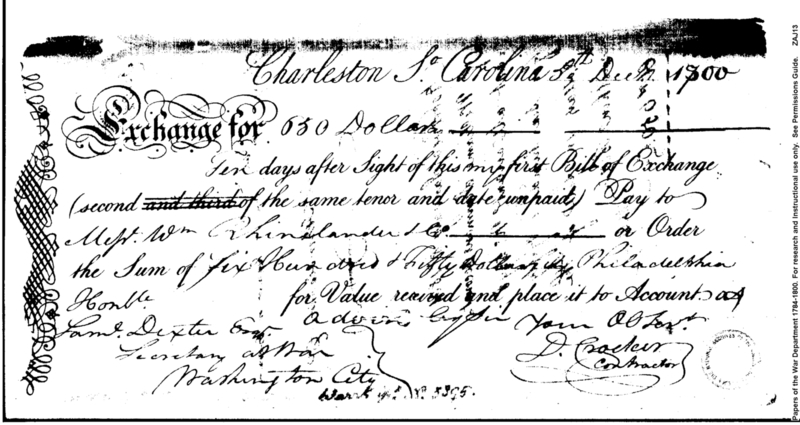 Charleston So. Carolina 5th Decr. 1800
Exchange for 650 Dollars
Ten days after Sight of this my first Bill of Exchange
(second and third of the same tenor and date unpaid,) Pay to
Messrs. Wm Rhinelander & Co. or Order
the Sum of Six Hundred & Fifty Dollars Philadelphia
for Value received and place it to Account as
Honble
advised by Sir Your Ob Servt.
Saml. Dexter Esqr
Secretary at War
Washington City
D. Crocker
Contractor
Warrt No. 3395.
Papers of the War Department 1784-1800. For research and instructional use only. See Permissions Guide. ZAJ13